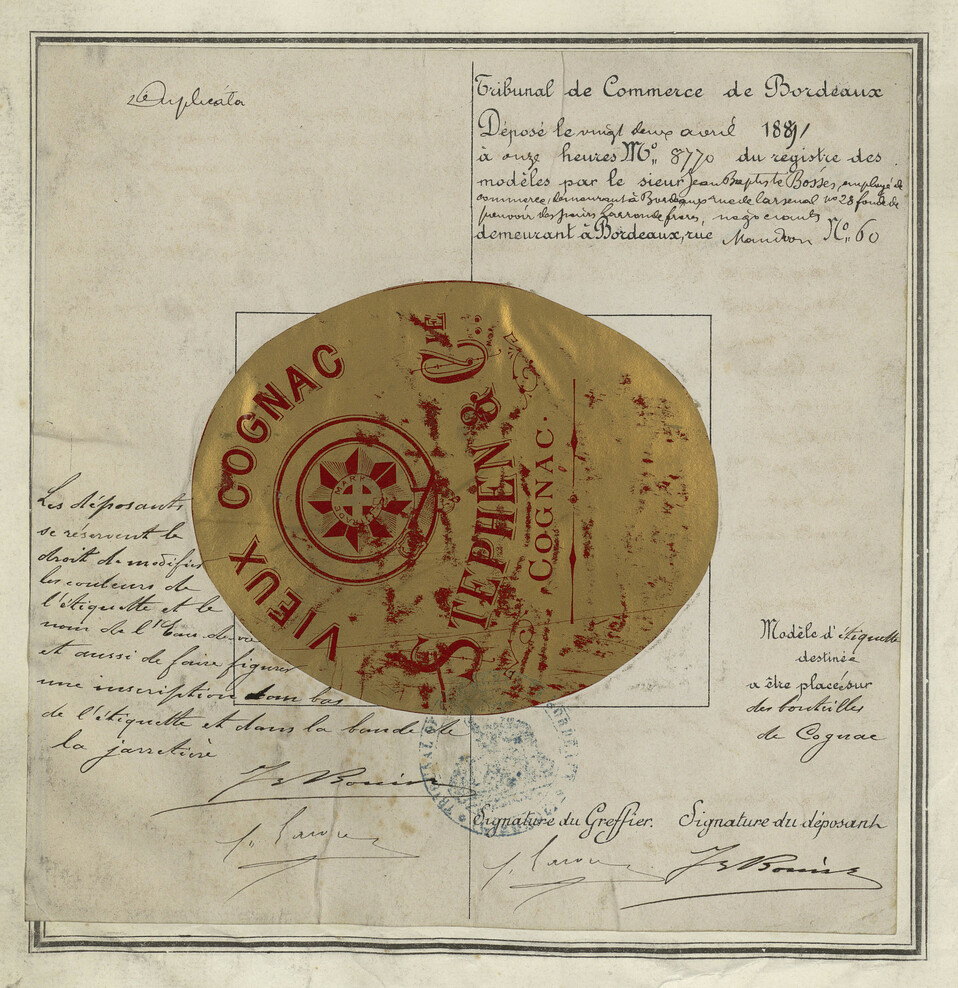 Duplicata
Tribunal de Commerce de Bordeaux
Déposé le vingt deux avril 1881
à onze heures No. 8770 du registre des
modèles par le sieur Jean Baptiste employé de
commerce, demeurant à Bordeaux rue de l'arsenal no 28 fondé de
pouvoir des sieurs frères, négociants
demeurant à Bordeaux, rue No. 60
VIEUX COGNAC
MARQUE
STEPHEN & CIE
COGNAC.
Les déposants
se réservent le
droit de modifier
les couleurs de
l'étiquette et le
nom de l'Eau-de-vie
et aussi de faire figurer
une inscription bas
de l'étiquette et dans la bande de
la jarretière
Modèle d'étiquette
destinée
a être placée sur
des bouteilles
de Cognac
TRIBUNAL DE BORDEAUX
Signature du Greffier. Signature du déposant